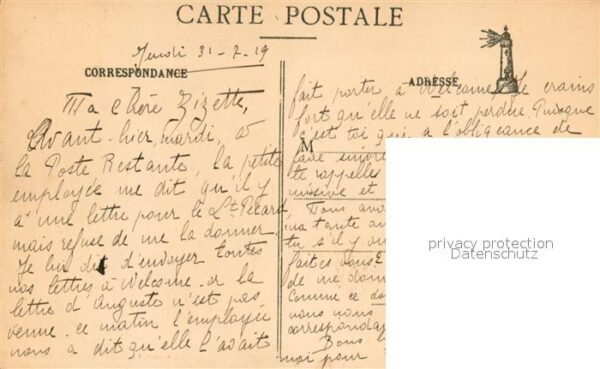 CARTE POSTALE
Jeudi 31-7-19
CORRESPONDANCE
Ma chère Zizette,
Avant-hier, mardi, à
la Poste Restante, la petite
employée me dit qu'il y
a une lettre pour le Lt Picard
mais refuse de me la donner.
Je lui dit d'envoyer toutes
nos lettres à Welcome. or la
lettre d'Auguste n'est pas
venue. ce matin l'employée
nous a dit qu'elle l'avait
ADRESSE
fait porter à Welcome. Je crains
fort qu'elle ne soit perdue. Puisque
M c'est toi qui a l'obligeance de
faire suivre
te rappeller
missive et
Nous avo
ma tante au
tu s'il y au
faites vous
de me donn
Comme ce do
nous nous
correspondan
Bons
moi pour
privacy protection
Datenschutz